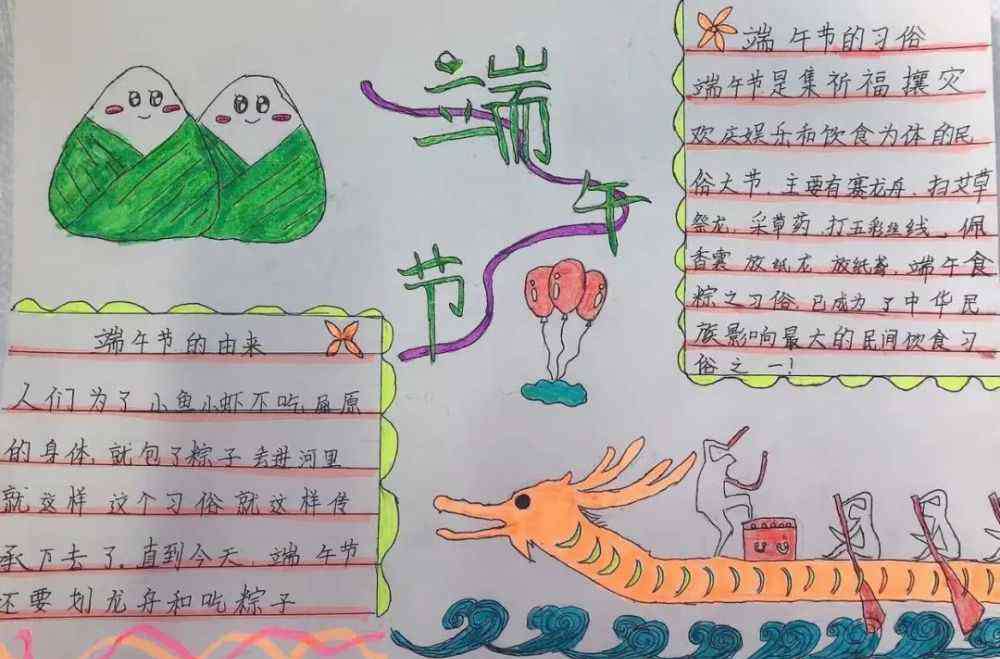 端午节
端午节的习俗
端午节是集祈福攘灾
欢庆娱乐和饮食为体的民
俗大节.主要有赛龙舟、扫艾草
祭龙、采草药、打五彩丝线、佩
香囊 放纸龙 放纸鸢、端午食
粽之习俗 已成为了中华民
族影响最大的民间饮食习
俗之一!
端午节的由来
人们为了小鱼小虾不吃屈原
的身体,就包了粽子 丢进河里
就这样 这个习俗 就这样传
承下去了.直到今天、端午节
还要划龙舟和吃粽子